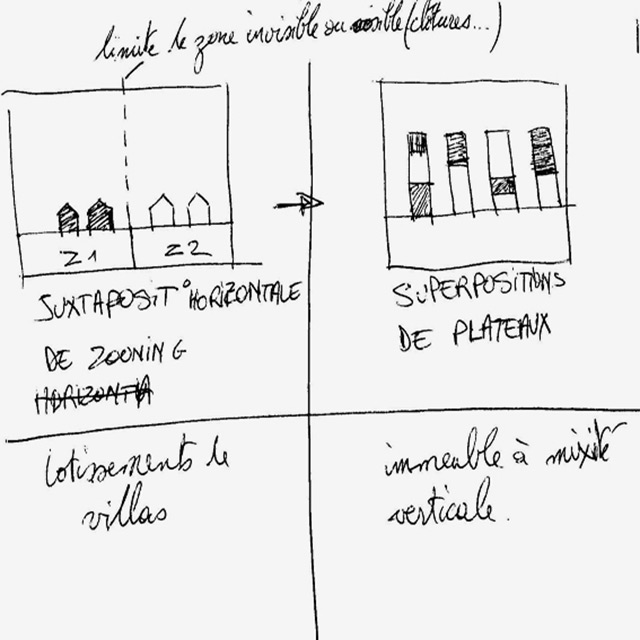 limite de zone invisible ou visible (clôtures...)
Z1
Z2
JUXTAPOSIT° HORIZONTALE
DE ZOONING
HORIZONTA
SUPERPOSITIONS
DE PLATEAUX
lotissements de
villas
immeuble à mixité
verticale.